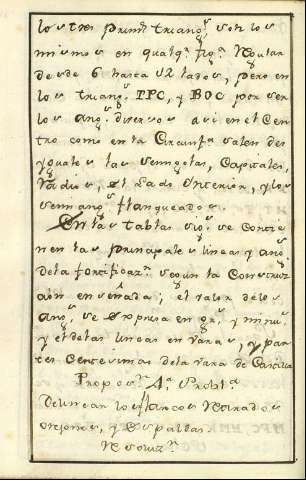 los tres prim.s triang.s son los
mismos en qualq.a fig.a Regular
desde 6 hasta 12 lados, pero en
los triang.s PPC, y BOC por ser
los ang.s diversos asi en el Cen
tro como en la Circunf.a salen des
yguales las semigolas, Capitales,
Radios, el Lado Interior, y los
semiang.s flanqueados.
En las tablas sig.s se Contie
nen las principales lineas y ang.s
de la fortificaz.n segun la Construcz
cion enseñada; el valor de los
ang.s se expresa en gr.s y minu.s
y el de las lineas en varas, y par
tes Centesimas de la vara de Castilla
Propos.n 4.a Probl.a
Delinear los flancos Retirados
orejones, y espaldas.
Resoluz.n